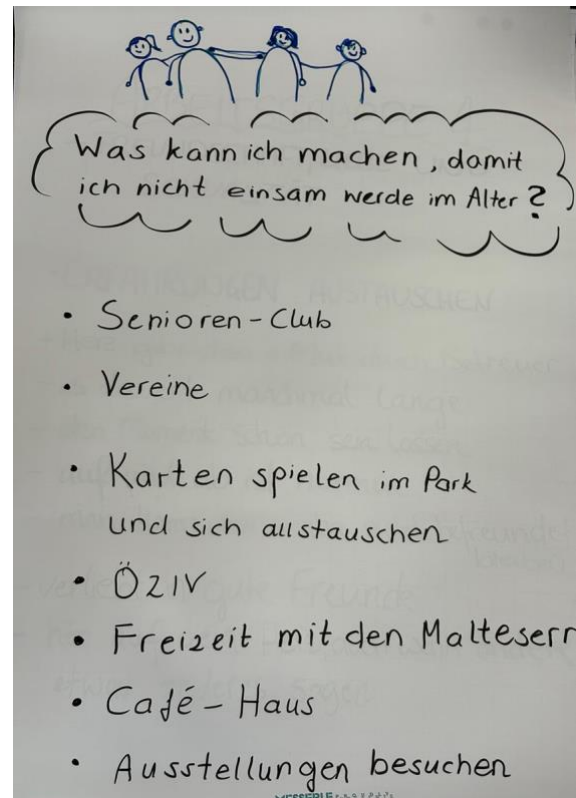 Was kann ich machen, damit
ich nicht einsam werde im Alter?
• Senioren-Club
• Vereine
• Karten spielen im Park
und sich austauschen
• ÖZIV
• Freizeit mit den Maltesern
• Café-Haus
• Ausstellungen besuchen